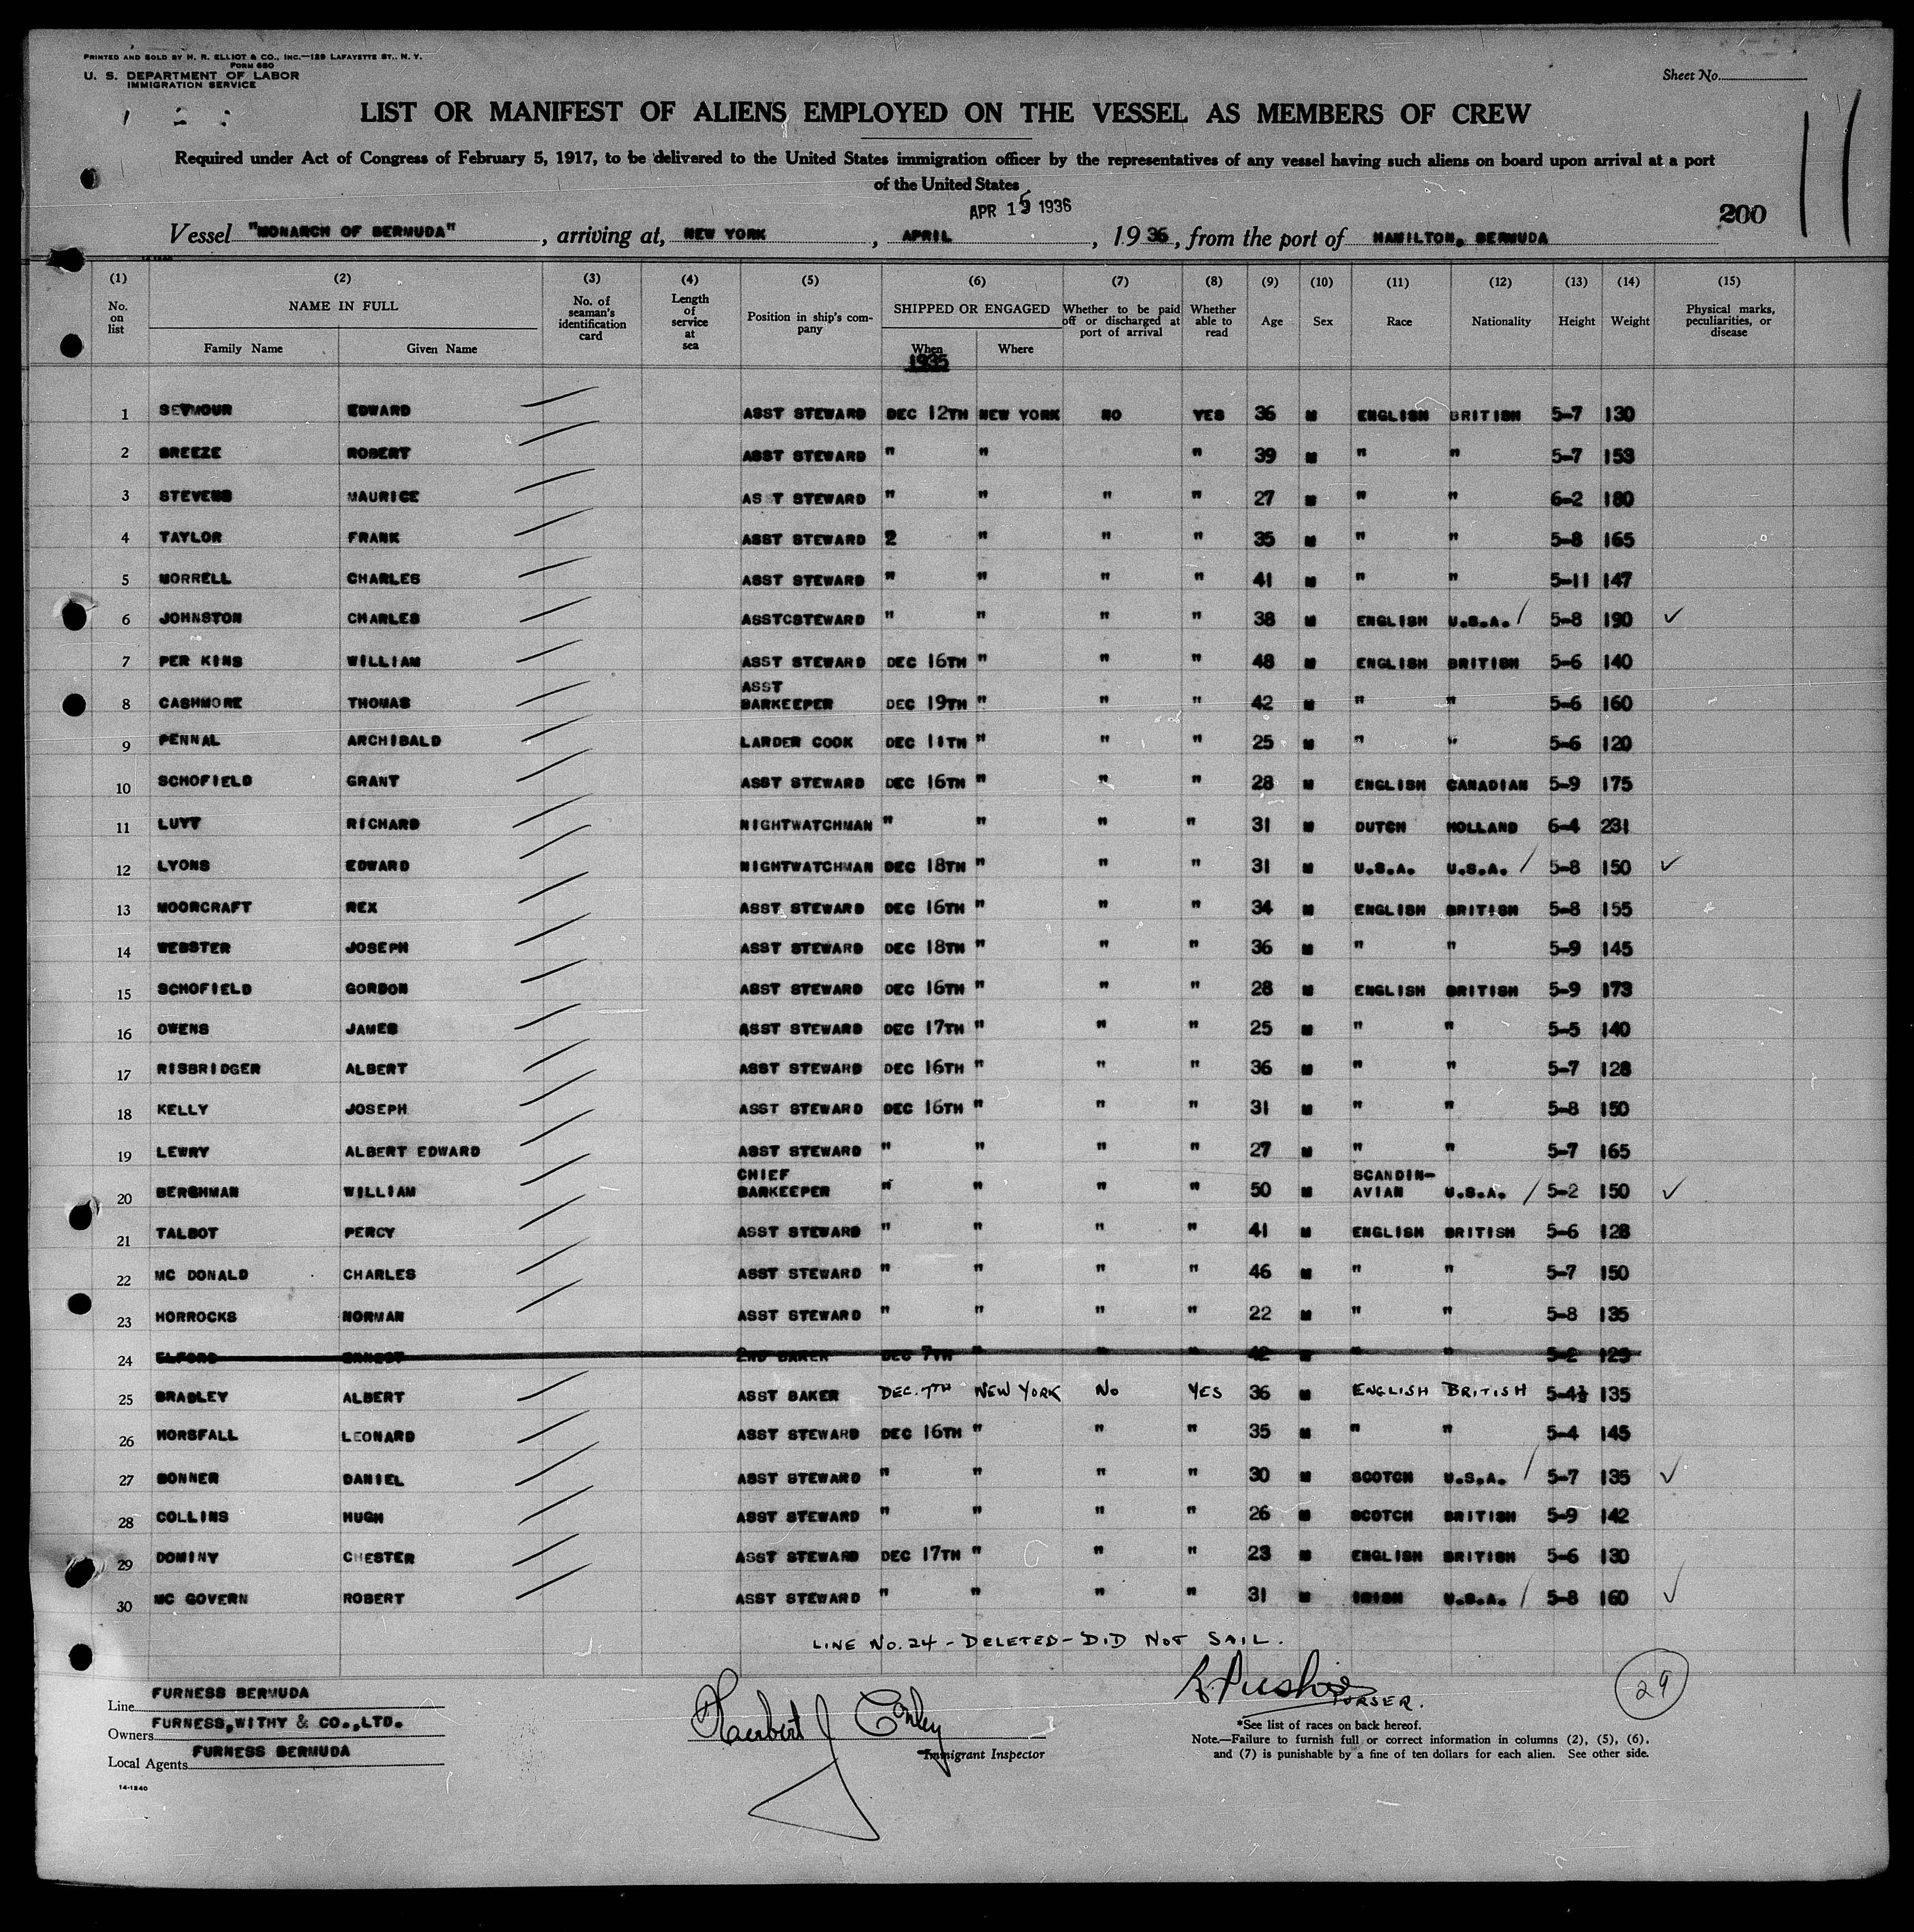 PRINTED AND SOLD BY H. R. ELLIOT & CO., INC.—129 LAFAYETTE ST., N. Y.
FORM 680
U. S. DEPARTMENT OF LABOR
IMMIGRATION SERVICE
Sheet No.
LIST OR MANIFEST OF ALIENS EMPLOYED ON THE VESSEL AS MEMBERS OF CREW
Required under Act of Congress of February 5, 1917, to be delivered to the United States immigration officer by the representatives of any vessel having such aliens on board upon arrival at a port
of the United States
APR 15 1936
200
Vessel "MONARCH OF BERMUDA", arriving at, NEW YORK, APRIL, 1936, from the port of HAMILTON, BERMUDA
(1) (2) (3) (4) (5) (6) (7) (8) (9) (10) (11) (12) (13) (14) (15)
No. on list NAME IN FULL Family Name Given Name No. of seaman's identification card Length of service at sea Position in ship's company SHIPPED OR ENGAGED When 1935 Where Whether to be paid off or discharged at port of arrival Whether able to read Age Sex Race Nationality Height Weight Physical marks, peculiarities, or disease
1 SEYMOUR EDWARD ASST STEWARD DEC 12TH NEW YORK NO YES 36 M ENGLISH BRITISH 5-7 130
2 BREEZE ROBERT ASST STEWARD " " " 39 M " " 5-7 153
3 STEVENS MAURICE AS T STEWARD " " " " 27 M " " 6-2 180
4 TAYLOR FRANK ASST STEWARD 2 " " " 35 M " " 5-8 165
5 MORRELL CHARLES ASST STEWARD " " " " 41 M " " 5-11 147
6 JOHNSTON CHARLES ASSTCSTEWARD " " " " 38 M ENGLISH U.S.A. / 5-8 190 ✓
7 PER KINS WILLIAM ASST STEWARD DEC 16TH " " " 48 M ENGLISH BRITISH 5-6 140
8 CASHMORE THOMAS ASST BARKEEPER DEC 19TH " " " 42 M " " 5-6 160
9 PENNAL ARCHIBALD LARDER COOK DEC 11TH " " " 25 M " " 5-6 120
10 SCHOFIELD GRANT ASST STEWARD DEC 16TH " " " 28 M ENGLISH CANADIAN 5-9 175
11 LUYT RICHARD NIGHTWATCHMAN " " " " 31 M DUTCH HOLLAND 6-4 231
12 LYONS EDWARD NIGHTWATCHMAN DEC 18TH " " " 31 M U.S.A. U.S.A. / 5-8 150 ✓
13 MOORCRAFT REX ASST STEWARD DEC 16TH " " " 34 M ENGLISH BRITISH 5-8 155
14 WEBSTER JOSEPH ASST STEWARD DEC 18TH " " " 36 M " " 5-9 145
15 SCHOFIELD GORDON ASST STEWARD DEC 16TH " " " 28 M ENGLISH BRITISH 5-9 173
16 OWENS JAMES ASST STEWARD DEC 17TH " " " 25 M " " 5-5 140
17 RISBRIDGER ALBERT ASST STEWARD DEC 16TH " " " 36 M " " 5-7 128
18 KELLY JOSEPH ASST STEWARD DEC 16TH " " " 31 M " " 5-8 150
19 LEWRY ALBERT EDWARD ASST STEWARD " " " " 27 M " " 5-7 165
20 BERGHMAN WILLIAM CHIEF BARKEEPER " " " " 50 M SCANDIN-AVIAN U.S.A. / 5-2 150 ✓
21 TALBOT PERCY ASST STEWARD " " " " 41 M ENGLISH BRITISH 5-6 128
22 MC DONALD CHARLES ASST STEWARD " " " " 46 M " " 5-7 150
23 HORROCKS NORMAN ASST STEWARD " " " " 22 M " " 5-8 135
24 ELFORD ERNEST 2ND BAKER DEC 7TH " " " 42 M " " 5-2 125
25 BRADLEY ALBERT ASST BAKER DEC. 7TH NEW YORK NO YES 36 M ENGLISH BRITISH 5-4½ 135
26 HORSFALL LEONARD ASST STEWARD DEC 16TH " " " 35 M " " 5-4 145
27 BONNER DANIEL ASST STEWARD " " " " 30 M SCOTCH U.S.A. / 5-7 135 ✓
28 COLLINS HUGH ASST STEWARD " " " " 26 M SCOTCH BRITISH 5-9 142
29 DOMINY CHESTER ASST STEWARD DEC 17TH " " " 23 M ENGLISH BRITISH 5-6 130
30 MC GOVERN ROBERT ASST STEWARD " " " " 31 M IRISH U.S.A. / 5-8 160 ✓
LINE NO. 24 - DELETED - DID NOT SAIL.
Line FURNESS BERMUDA
Owners FURNESS, WITHY & CO., LTD.
Local Agents FURNESS BERMUDA
14-1240
Herbert J Conley
Immigrant Inspector
PURSER.
29
*See list of races on back hereof.
Note.—Failure to furnish full or correct information in columns (2), (5), (6),
and (7) is punishable by a fine of ten dollars for each alien. See other side.